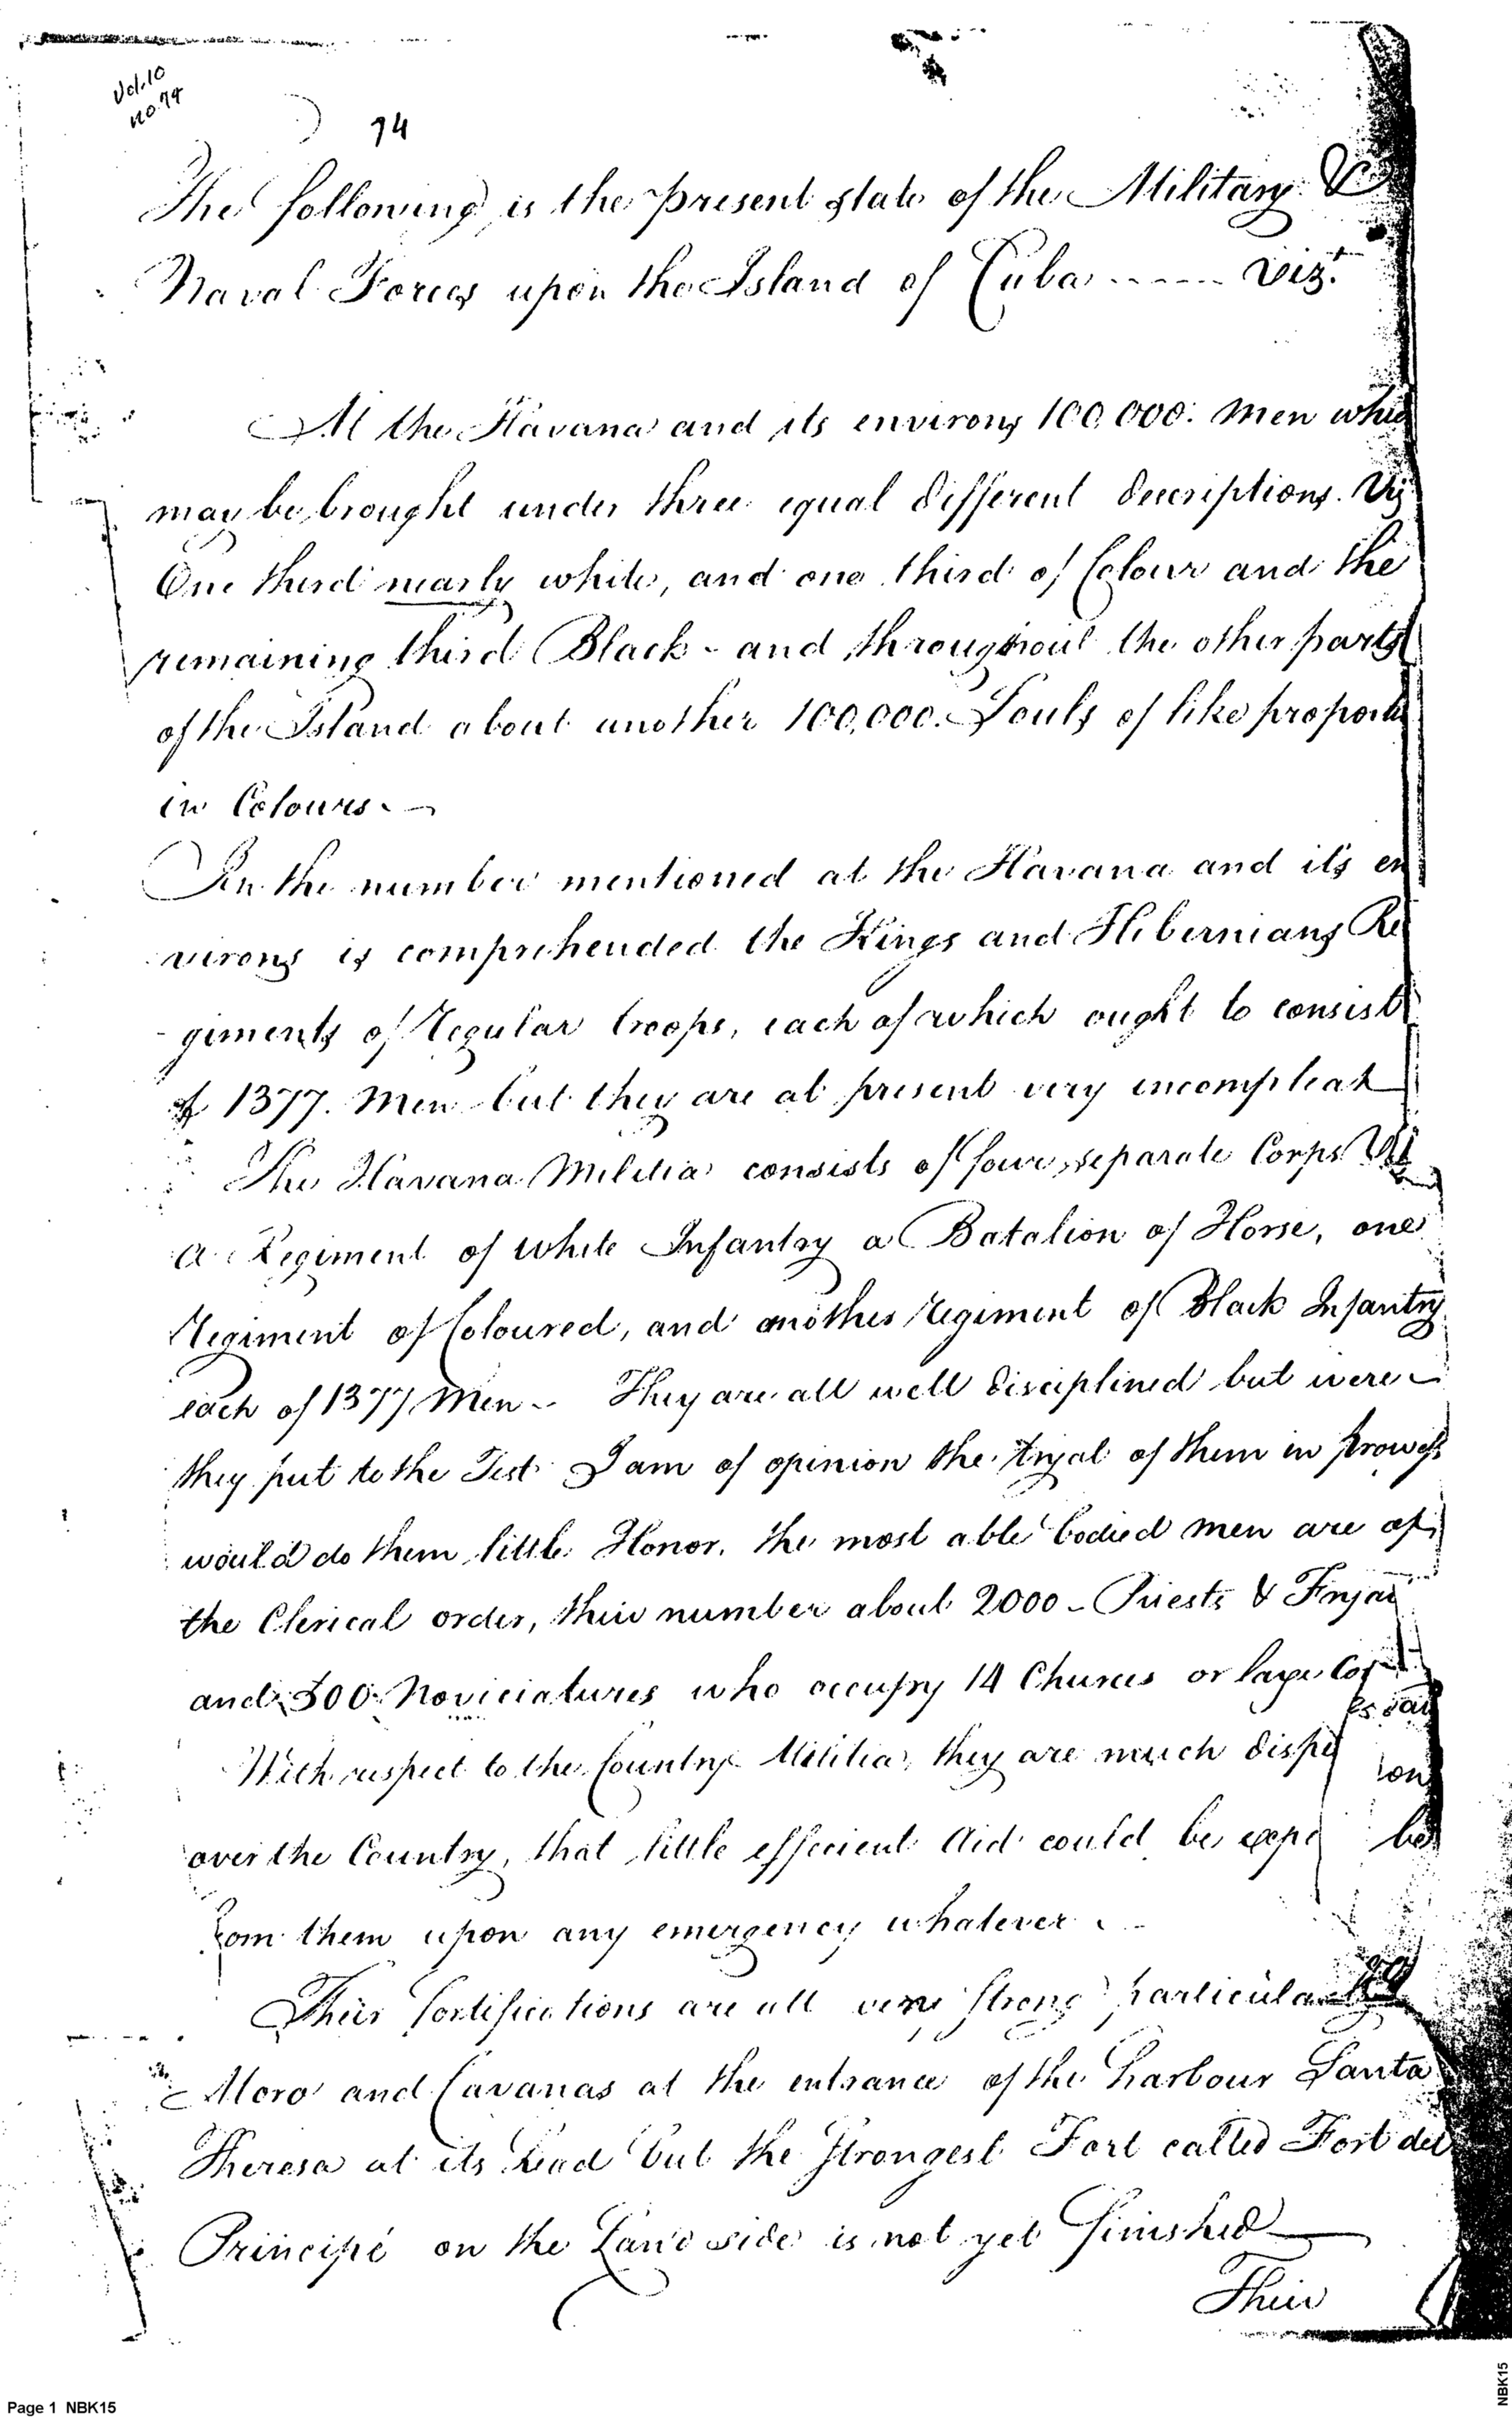 Vol. 10
no. 74
74
The following is the present state of the Military &
Naval Forces upon the Island of Cuba ----- Vizt.
At the Havana and its environs 100,000. Men whic
may be brought under three equal different descriptions. Viz
One third nearly white, and one third of Colour and the
remaining third Black - and throughout the other parts
of the Island about another 100,000. Souls of like proporti
in Colours. -
In the number mentioned at the Havana and it's en
virons is comprehended the Kings and Hibernians Re
giments of regular troops, each of which ought to consist
of 1377. Men but they are at present very incompleat
The Havana Militia consists of four separate Corps Viz
a Regiment of white Infantry a Batalion of Horse, one
regiment of Coloured, and another regiment of Black Infantry
each of 1377 Men - They are all well disciplined but were -
they put to the Test I am of opinion the tryal of them in prowess
would do them little Honor. the most able bodied men are of
the Clerical order, their number about 2000 - Priests & Fryar
and 300 Noviciatures who occupy 14 Churces or large Co
With respect to the Country Militia, they are much dispe
over the Country, that little efficient Aid could be expe
from them upon any emergency whatever. -
Their fortifications are all very strong particularly
Moro and Cavanas at the entrance of the harbour Santa
Theresa at its head but the strongest Fort called Fort del
Principé on the Land side is not yet finished
Their
Page 1 NBK15
NBK15